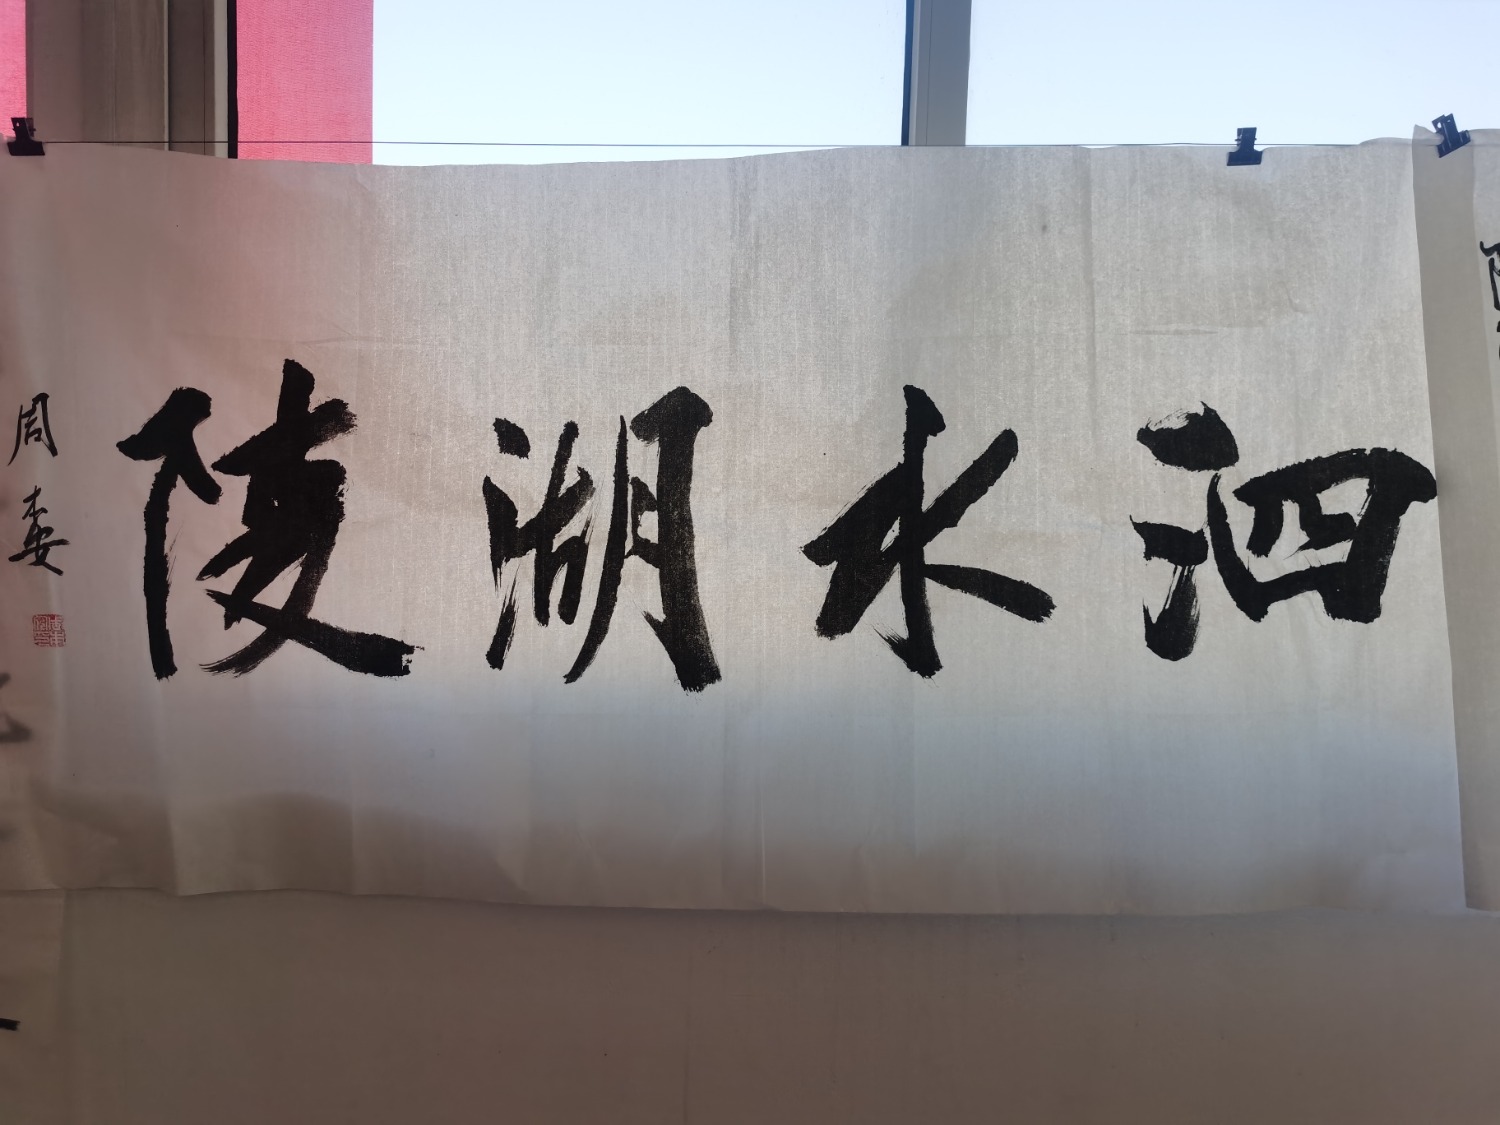 泗水湖陵
周